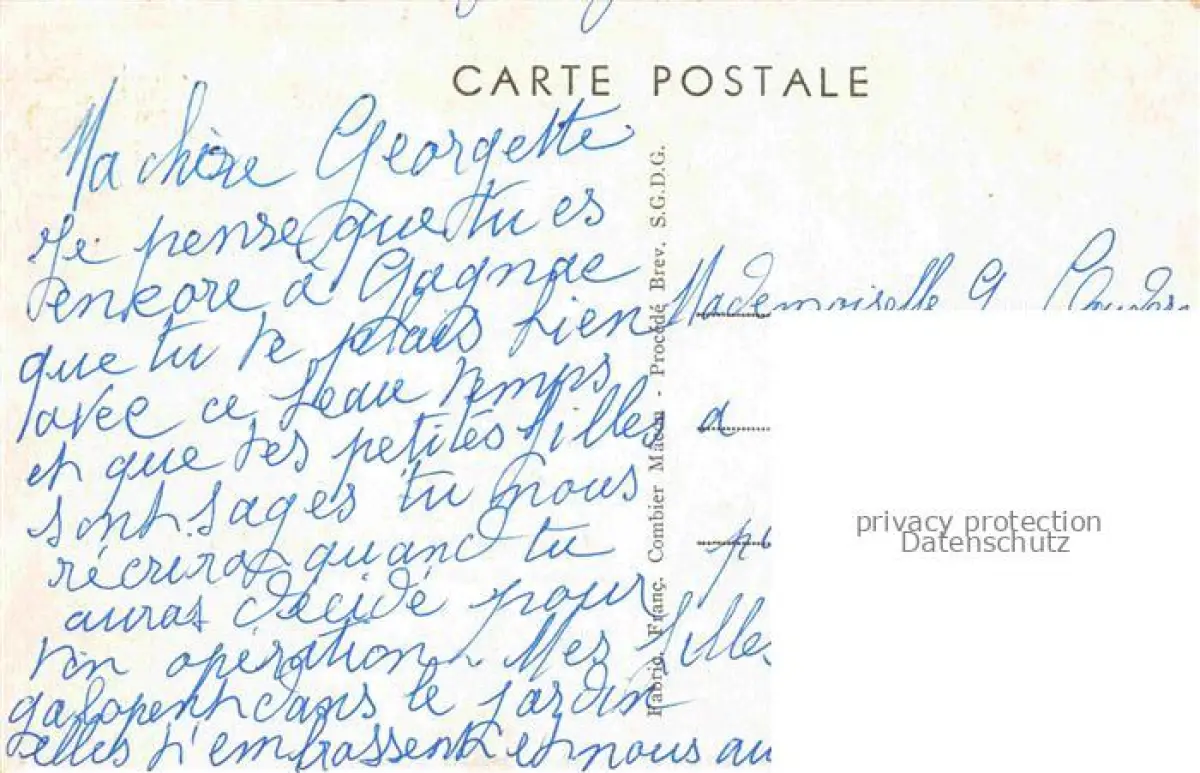 CARTE POSTALE
Ma chère Georgette
Je pense que tu es
encore à Gagnac
que tu te plais bien
avec ce beau temps
et que tes petites filles
sont sages tu nous
récriras quand tu
auras décidé pour
ton opération. Mes filles
galopent dans le jardin
elles t'embrassent et nous au
Mademoiselle G.
a
Fabric. Franç. Combier Macon - Procédé Brev. S.G.D.G.
privacy protection
Datenschutz